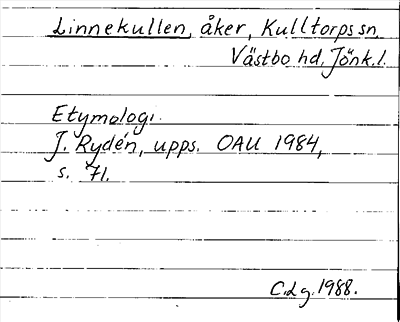 Linnekullen, åker, Kulltorps sn,
Västbo hd, Jönk.l.
Etymologi.
J. Rydén, upps. OAU 1984,
s. 71.
C.Lg. 1988.